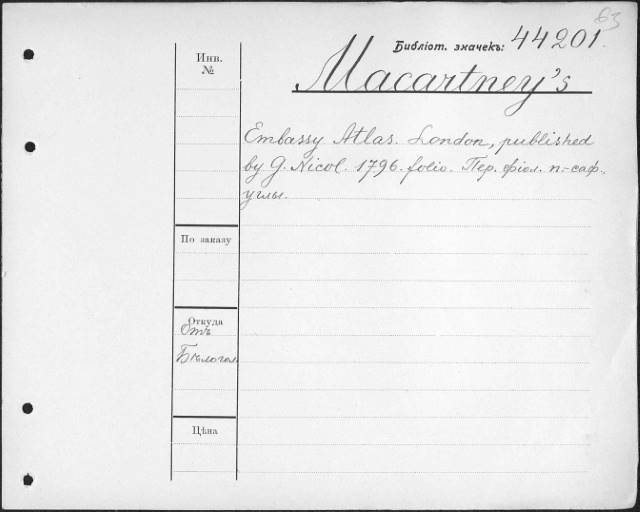 63
Бібліот. значекъ: 44201.
Инв.
№
Macartney's
Embassy Atlas. London, published
by G. Nicol. 1796. folio. Пер. фіол. п.-саф.,
углы.
По заказу
Откуда
Отъ
Бѣлогол.
Цѣна